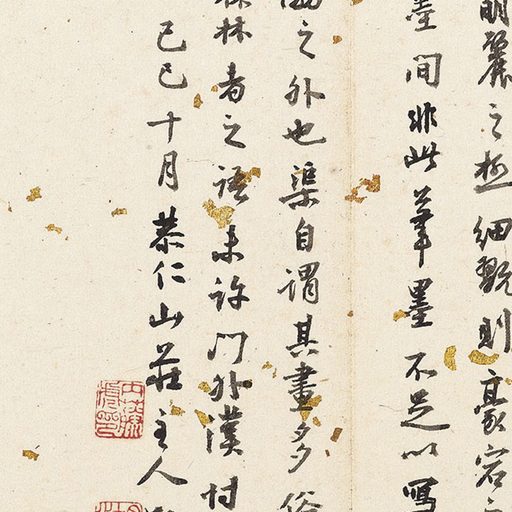 麗之極細觀則豪宕
墨間非此筆墨不足以寫
之外也渠自謂其畫多俗
林者之語未許門外漢忖
己巳十月恭仁山莊主人